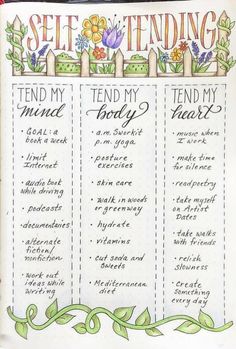 SELF TENDING
TEND MY
mind
• GOAL: a
book a week
• limit
Internet
• audio book
while driving
• podcasts
• documentaries
• alternate
fiction/
nonfiction
• work out
ideas while
writing
TEND MY
body
• a.m. Sworkit
p.m. yoga
• posture
exercises
• skin care
• walk in woods
or greenway
• hydrate
• vitamins
• cut soda and
sweets
• Mediterranean
diet
TEND MY
heart
• music when
I work
• make time
for silence
• read poetry
• take myself
on Artist
Dates
• take walks
with friends
• relish
slowness
• create
something
every day